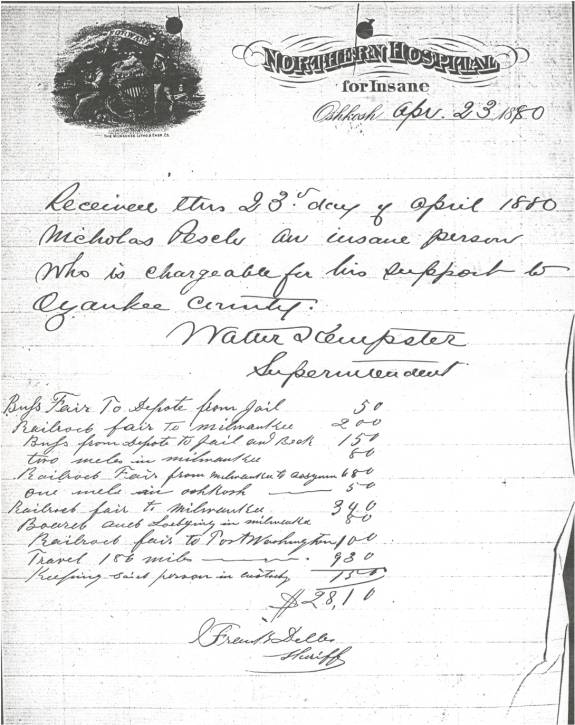 FORWARD
THE MILWAUKEE LITHO & ENGR. CO.
NORTHERN HOSPITAL
for Insane
Oshkosh Apr. 23 1880
Received this 23d day of April 1880
Nicholas Pesch an insane person
who is chargeable for his support to
Ozaukee County.
Walter Kempster
Superintendent
Buss Fair To Depote from Jail 50
Railroad fair to milwaukee 200
Buss from Depote to Jail and Back 150
two meles in milwaukee 80
Railroad Fair from milwaukee to 680
one mele in oshkosh — 50
Railroad fair to Milwaukee 340
Board and Lodging in milwauke 80
Railroad fair to Port Washington 100
Travel 186 miles — 930
Keeping said person in custody 150
$28,10
Frank Delles
Sheriff